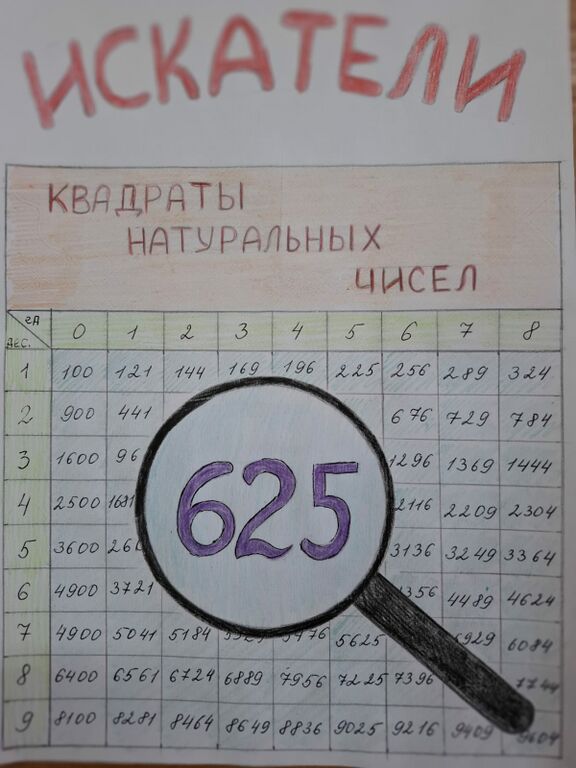 ИСКАТЕЛИ
КВАДРАТЫ
НАТУРАЛЬНЫХ
ЧИСЕЛ
ед
дес. 0 1 2 3 4 5 6 7 8
1 100 121 144 169 196 225 256 289 324
2 900 441 676 729 784
3 1600 96 1296 1369 1444
4 2500 1681 2116 2209 2304
5 3600 260 3136 3249 3364
6 4900 3721 1356 4489 4624
7 4900 5041 5184 5625 5929 6084
8 6400 6561 6724 6889 7956 7225 7396 7744
9 8100 8281 8464 8649 8836 9025 9216 9409 9604
625